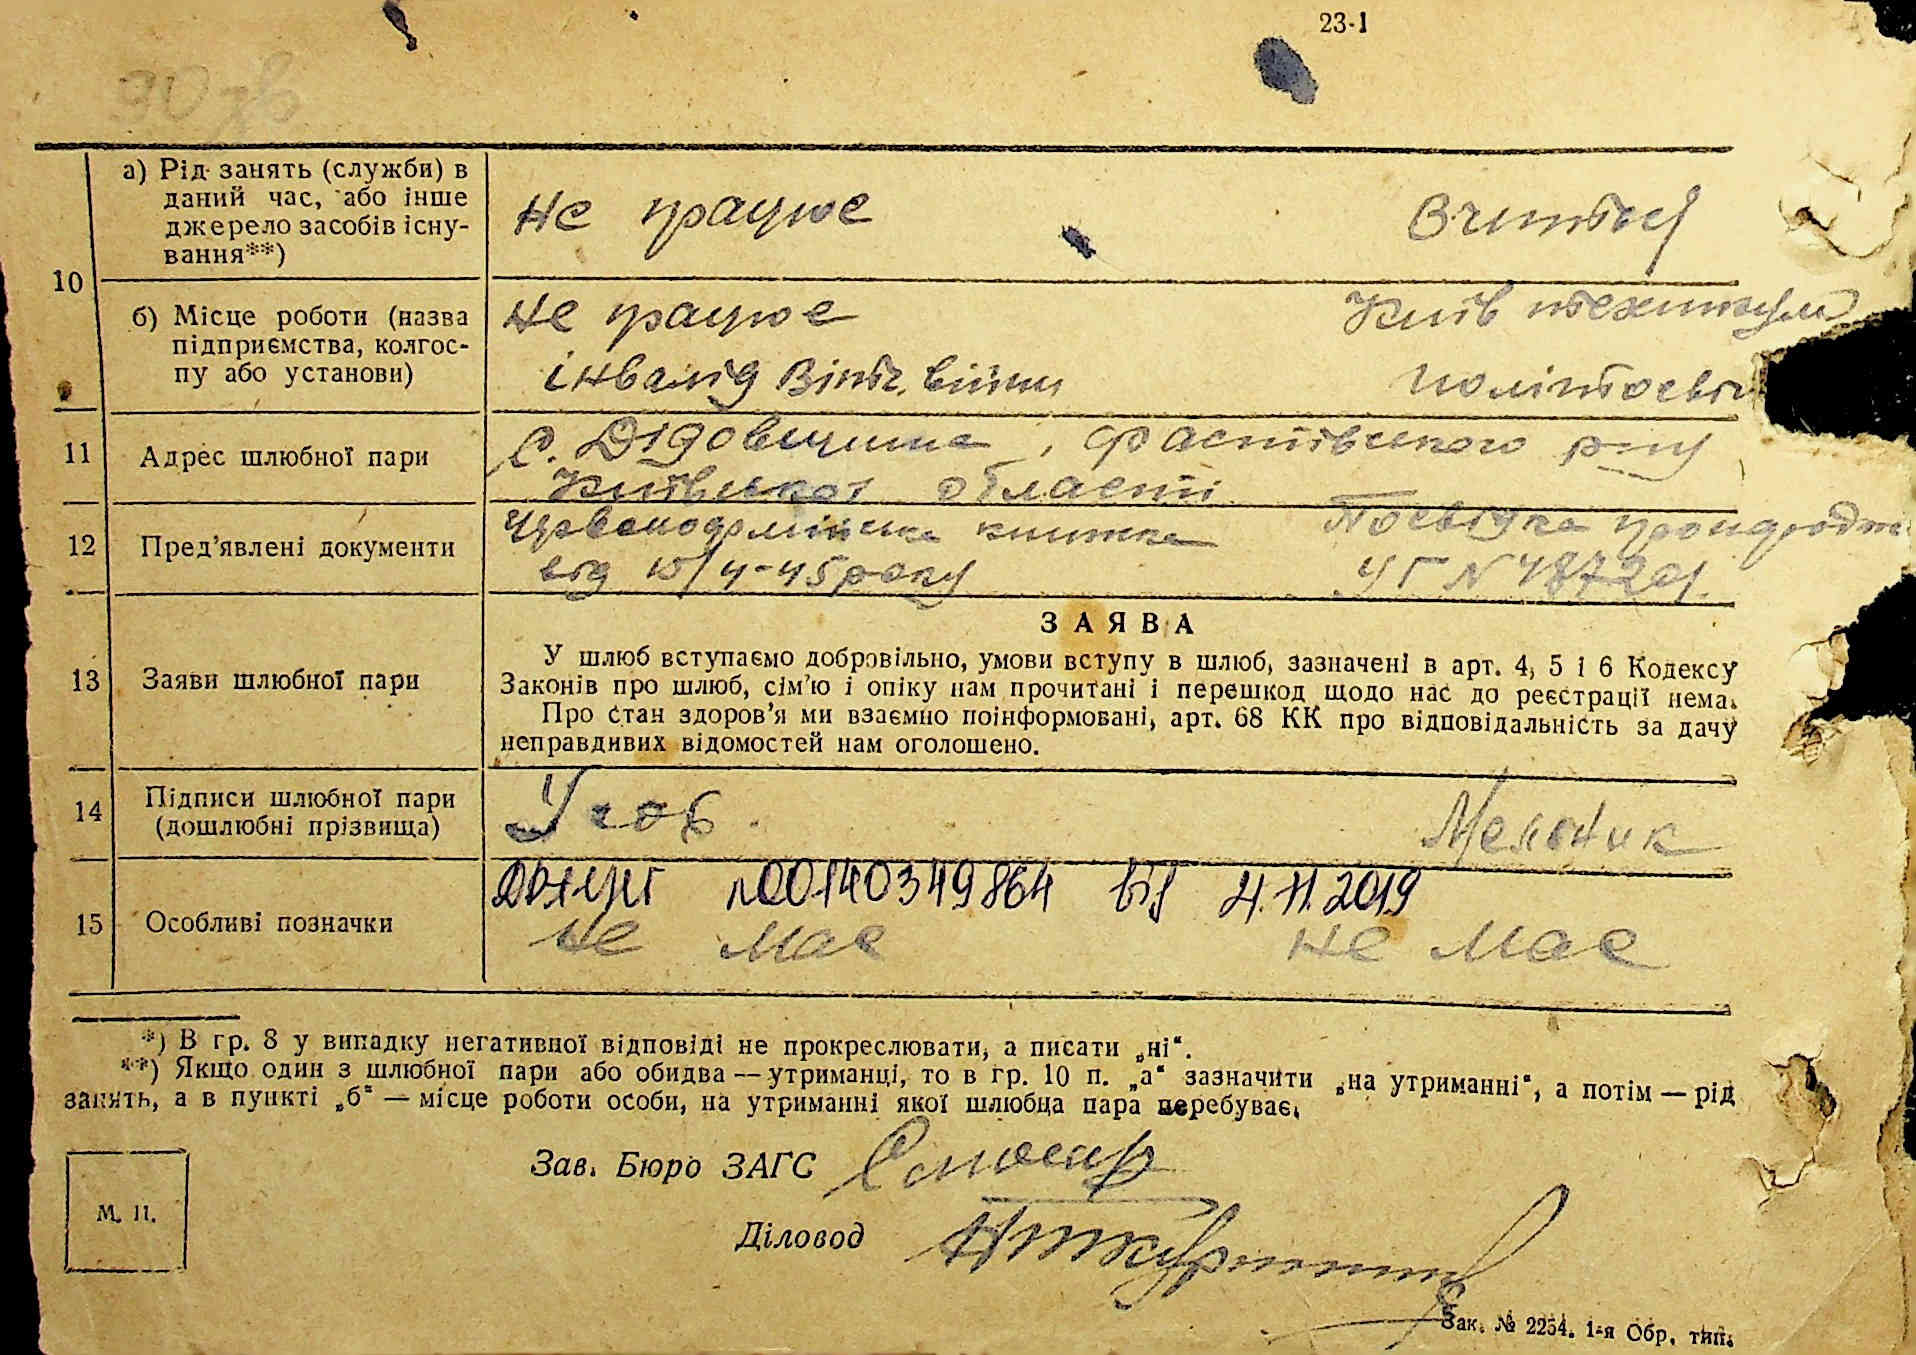 23-1
90 зв
10
а) Рід занять (служби) в
даний час, або інше
джерело засобів існу-
вання**)
Не працює
Вчител
б) Місце роботи (назва
підприємства, колгос-
пу або установи)
Не працює
інвалід Вітч. війни
Київ технікум
політосвіт
11
Адрес шлюбної пари
с. Дідовщина, Фастівського р-ну
Київської області
12
Пред'явлені документи
Червоноармійська книжка
від 10/4-45 року
Посвідка про народж
УГ N 487201.
13
Заяви шлюбної пари
ЗАЯВА
У шлюб вступаємо добровільно, умови вступу в шлюб, зазначені в арт. 4, 5 і 6 Кодексу
Законів про шлюб, сім'ю і опіку нам прочитані і перешкод щодо нас до реєстрації нема.
Про стан здоров'я ми взаємно поінформовані, арт. 68 КК про відповідальність за дачу
неправдивих відомостей нам оголошено.
14
Підписи шлюбної пари
(дошлюбні прізвища)
Мельник
15
Особливі позначки
00140349864 від 4.11.2019
не має
не має
*) В гр. 8 у випадку негативної відповіді не прокреслювати, а писати „ні“.
**) Якщо один з шлюбної пари або обидва — утриманці, то в гр. 10 п. „а“ зазначити „на утриманні“, а потім — рід
занять, а в пункті „б“ — місце роботи особи, на утриманні якої шлюбна пара перебуває.
Зав. Бюро ЗАГС
Діловод
М. П.
Зак. № 2254. 1-я Обр. тип.